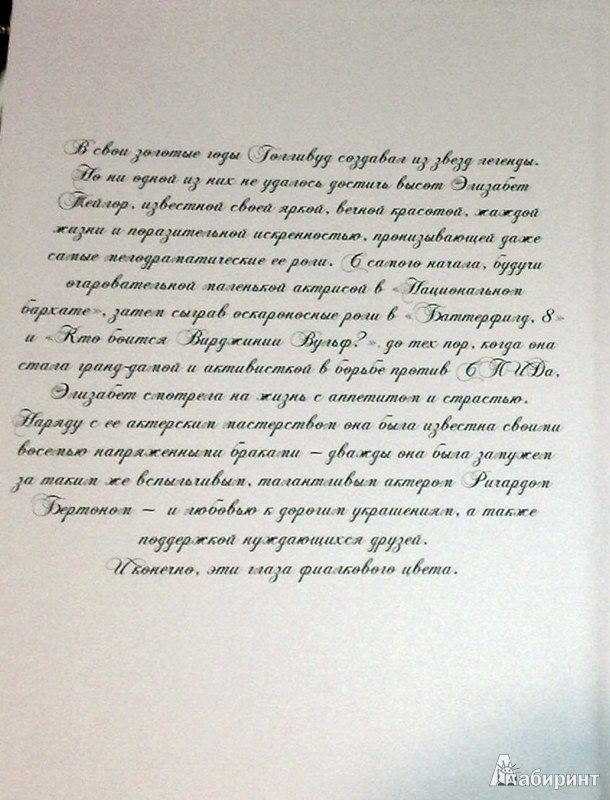 В свои золотые годы Голливуд создавал из звезд легенды.
Но ни одной из них не удалось достичь высот Элизабет
Тейлор, известной своей яркой, вечной красотой, жаждой
жизни и поразительной искренностью, пронизывающей даже
самые мелодраматические ее роли. С самого начала, будучи
очаровательной маленькой актрисой в «Национальном
бархате», затем сыграв оскароносные роли в «Баттерфилд, 8»
и «Кто боится Вирджинии Вульф?», до тех пор, когда она
стала гранд-дамой и активисткой в борьбе против СПИДа,
Элизабет смотрела на жизнь с аппетитом и страстью.
Наряду с ее актерским мастерством она была известна своими
восемью напряженными браками — дважды она была замужем
за таким же вспыльчивым, талантливым актером Ричардом
Бертоном — и любовью к дорогим украшениям, а также
поддержкой нуждающихся друзей.
И конечно, эти глаза фиалкового цвета.
Лабиринт